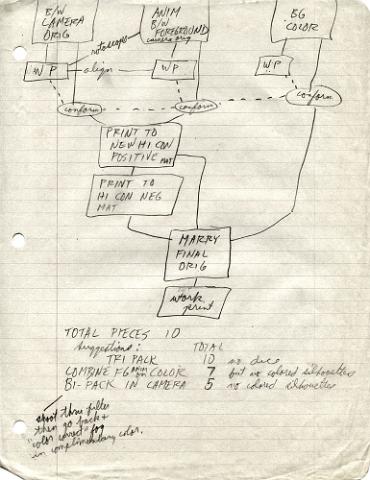 B/W
CAMERA
ORIG
ANIM
B/W
FOREGROUND
camera orig
BG
COLOR
rotoscope
WP
align
WP
WP
conform
conform
conform
PRINT TO
NEW HI CON
POSITIVE MAT
PRINT TO
HI CON NEG
MAT
MARRY
FINAL
ORIG
work
print
TOTAL PIECES 10
Suggestions: TOTAL
TRI PACK 10 no dice
COMBINE FG COLOR 7 but no colored silhouettes
BI-PACK IN CAMERA 5 no colored silhouettes
shoot three filter
then go back &
color correct fog
in complimentary color.